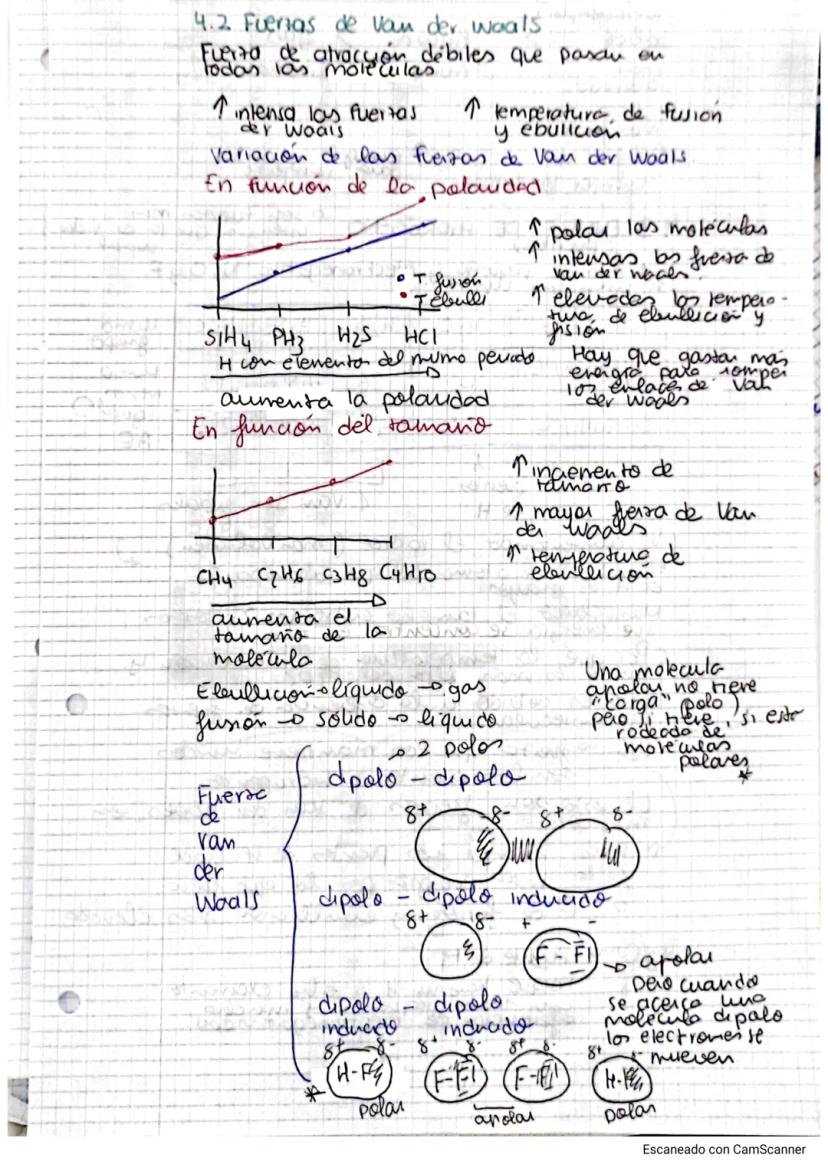 4.2 Fuerzas de Van der Waals
Fuerza de atracción débiles que pasan en
todas las moléculas
↑ intensa las fuerzas
der Waals
↑ temperatura de fusión
y ebullición
Variación de las fuerzas de Van der Waals
En función de la polaridad
• T fusión
• T ebulli
SiH4 PH3 H2S HCl
H con elementos del mismo periodo
aumenta la polaridad
↑ polar las moléculas
↑ intensas las fuerza de
Van der Waals.
↑ elevadas las tempera-
tura de ebullición y
fisión
Hay que gastar más
energía para romper
los enlaces de Van
der Waals
En función del tamaño
CH4 C2H6 C3H8 C4H10
aumenta el
tamaño de la
molécula
↑ incremento de
tamaño
↑ mayor fuerza de Van
der Waals
↑ temperatura de
ebullición
Ebullición → líquido → gas
fusión → sólido → líquido
Una molecula
apolar no tiene
"carga" (polo)
pero si tiene, si esta
rodeada de
moleculas
polares
*
Fuerza
de
Van
der
Waals
→ 2 polos
dipolo - dipolo
δ+ δ- δ+ δ-
dipolo - dipolo inducido
δ+ δ- + -
F - F
→ apolar
pero cuando
se acerca una
molécula dipolo
los electrones se
mueven
dipolo - dipolo
inducido inducido
δ+ δ- δ+ δ- δ+ δ- δ+ δ-
* H-F F-F F-F H-F
polar apolar polar
Escaneado con CamScanner